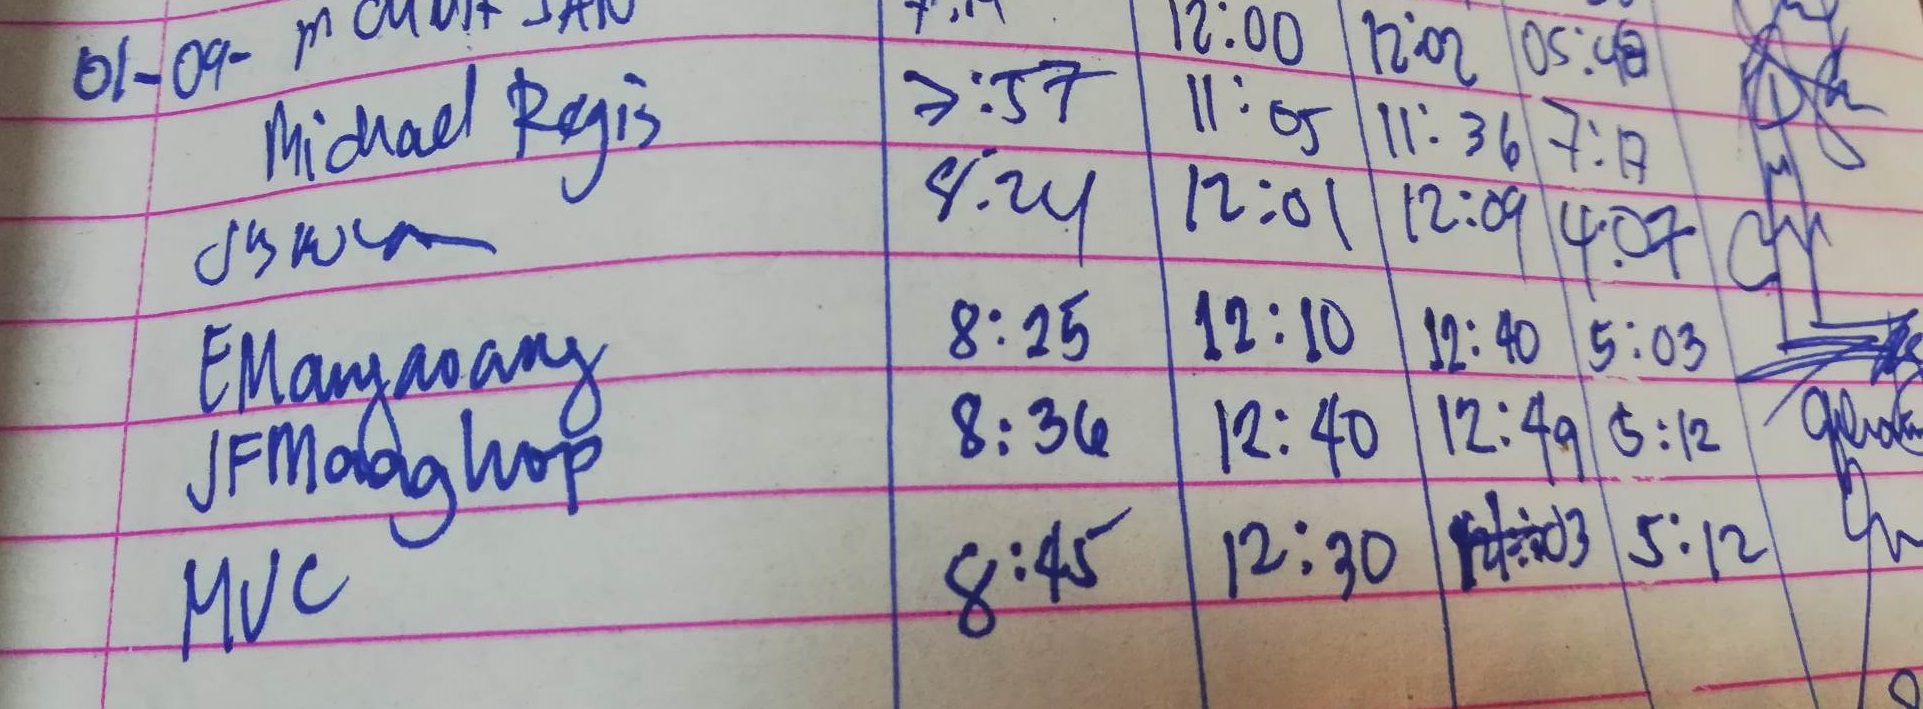 01-09- 12:00 12:02 05:48
Michael Regis 7:57 11:05 11:36 7:17
8:24 12:01 12:09 4:07
EMangaoang 8:25 12:10 12:40 5:03
JFMaag 8:36 12:40 12:49 5:12
MVC 8:45 12:30 5:12